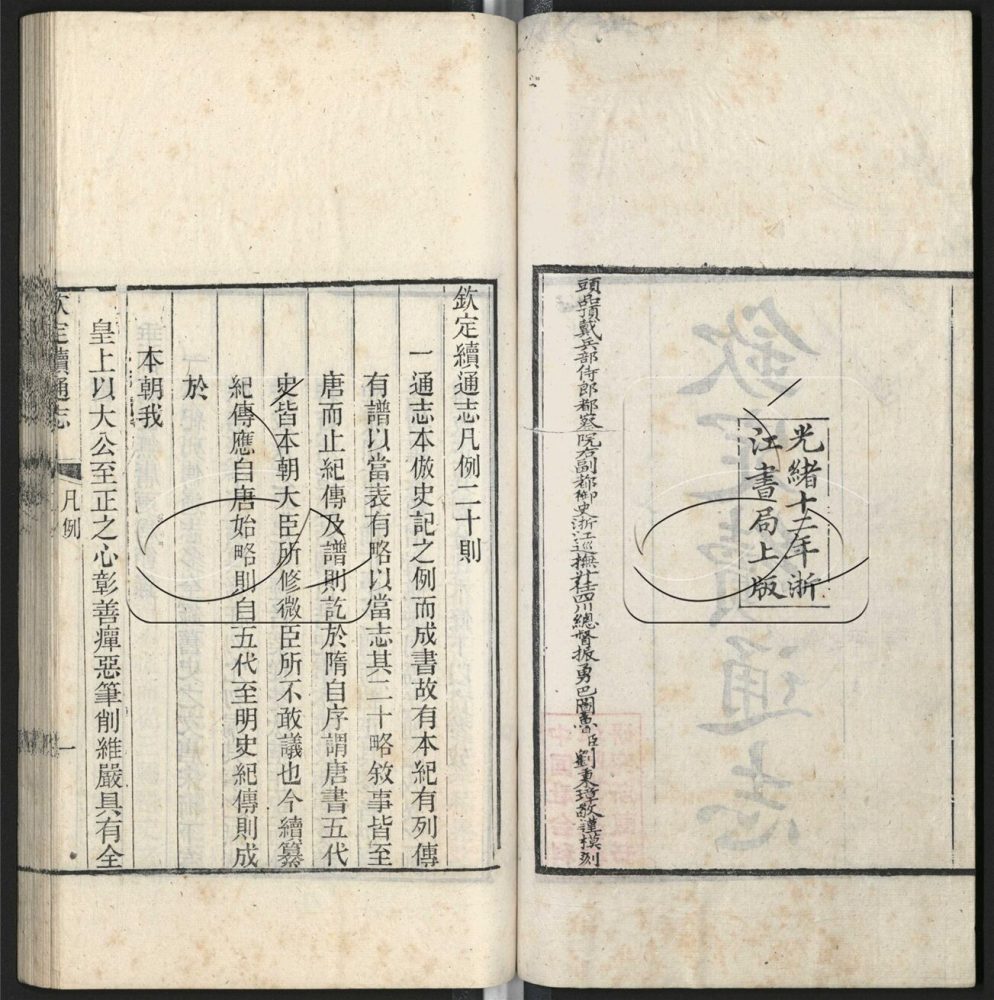 光緒十二年浙
江書局上版
頭品頂戴兵部侍郎都察院右副都御史浙江巡撫升任四川總督振勇巴圖魯臣劉秉璋敬謹模刻
欽定續通志凡例二十則
一通志本倣史記之例而成書故有本紀有列傳
有譜以當表有略以當志其二十略敘事皆至
唐而止紀傳及譜則訖於隋自序謂唐書五代
史皆本朝大臣所修微臣所不敢議也今續纂
紀傳應自唐始略則自五代至明史紀傳則成
於
本朝我
皇上以大公至正之心彰善癉惡筆削維嚴具有全
欽定續通志
凡例
一